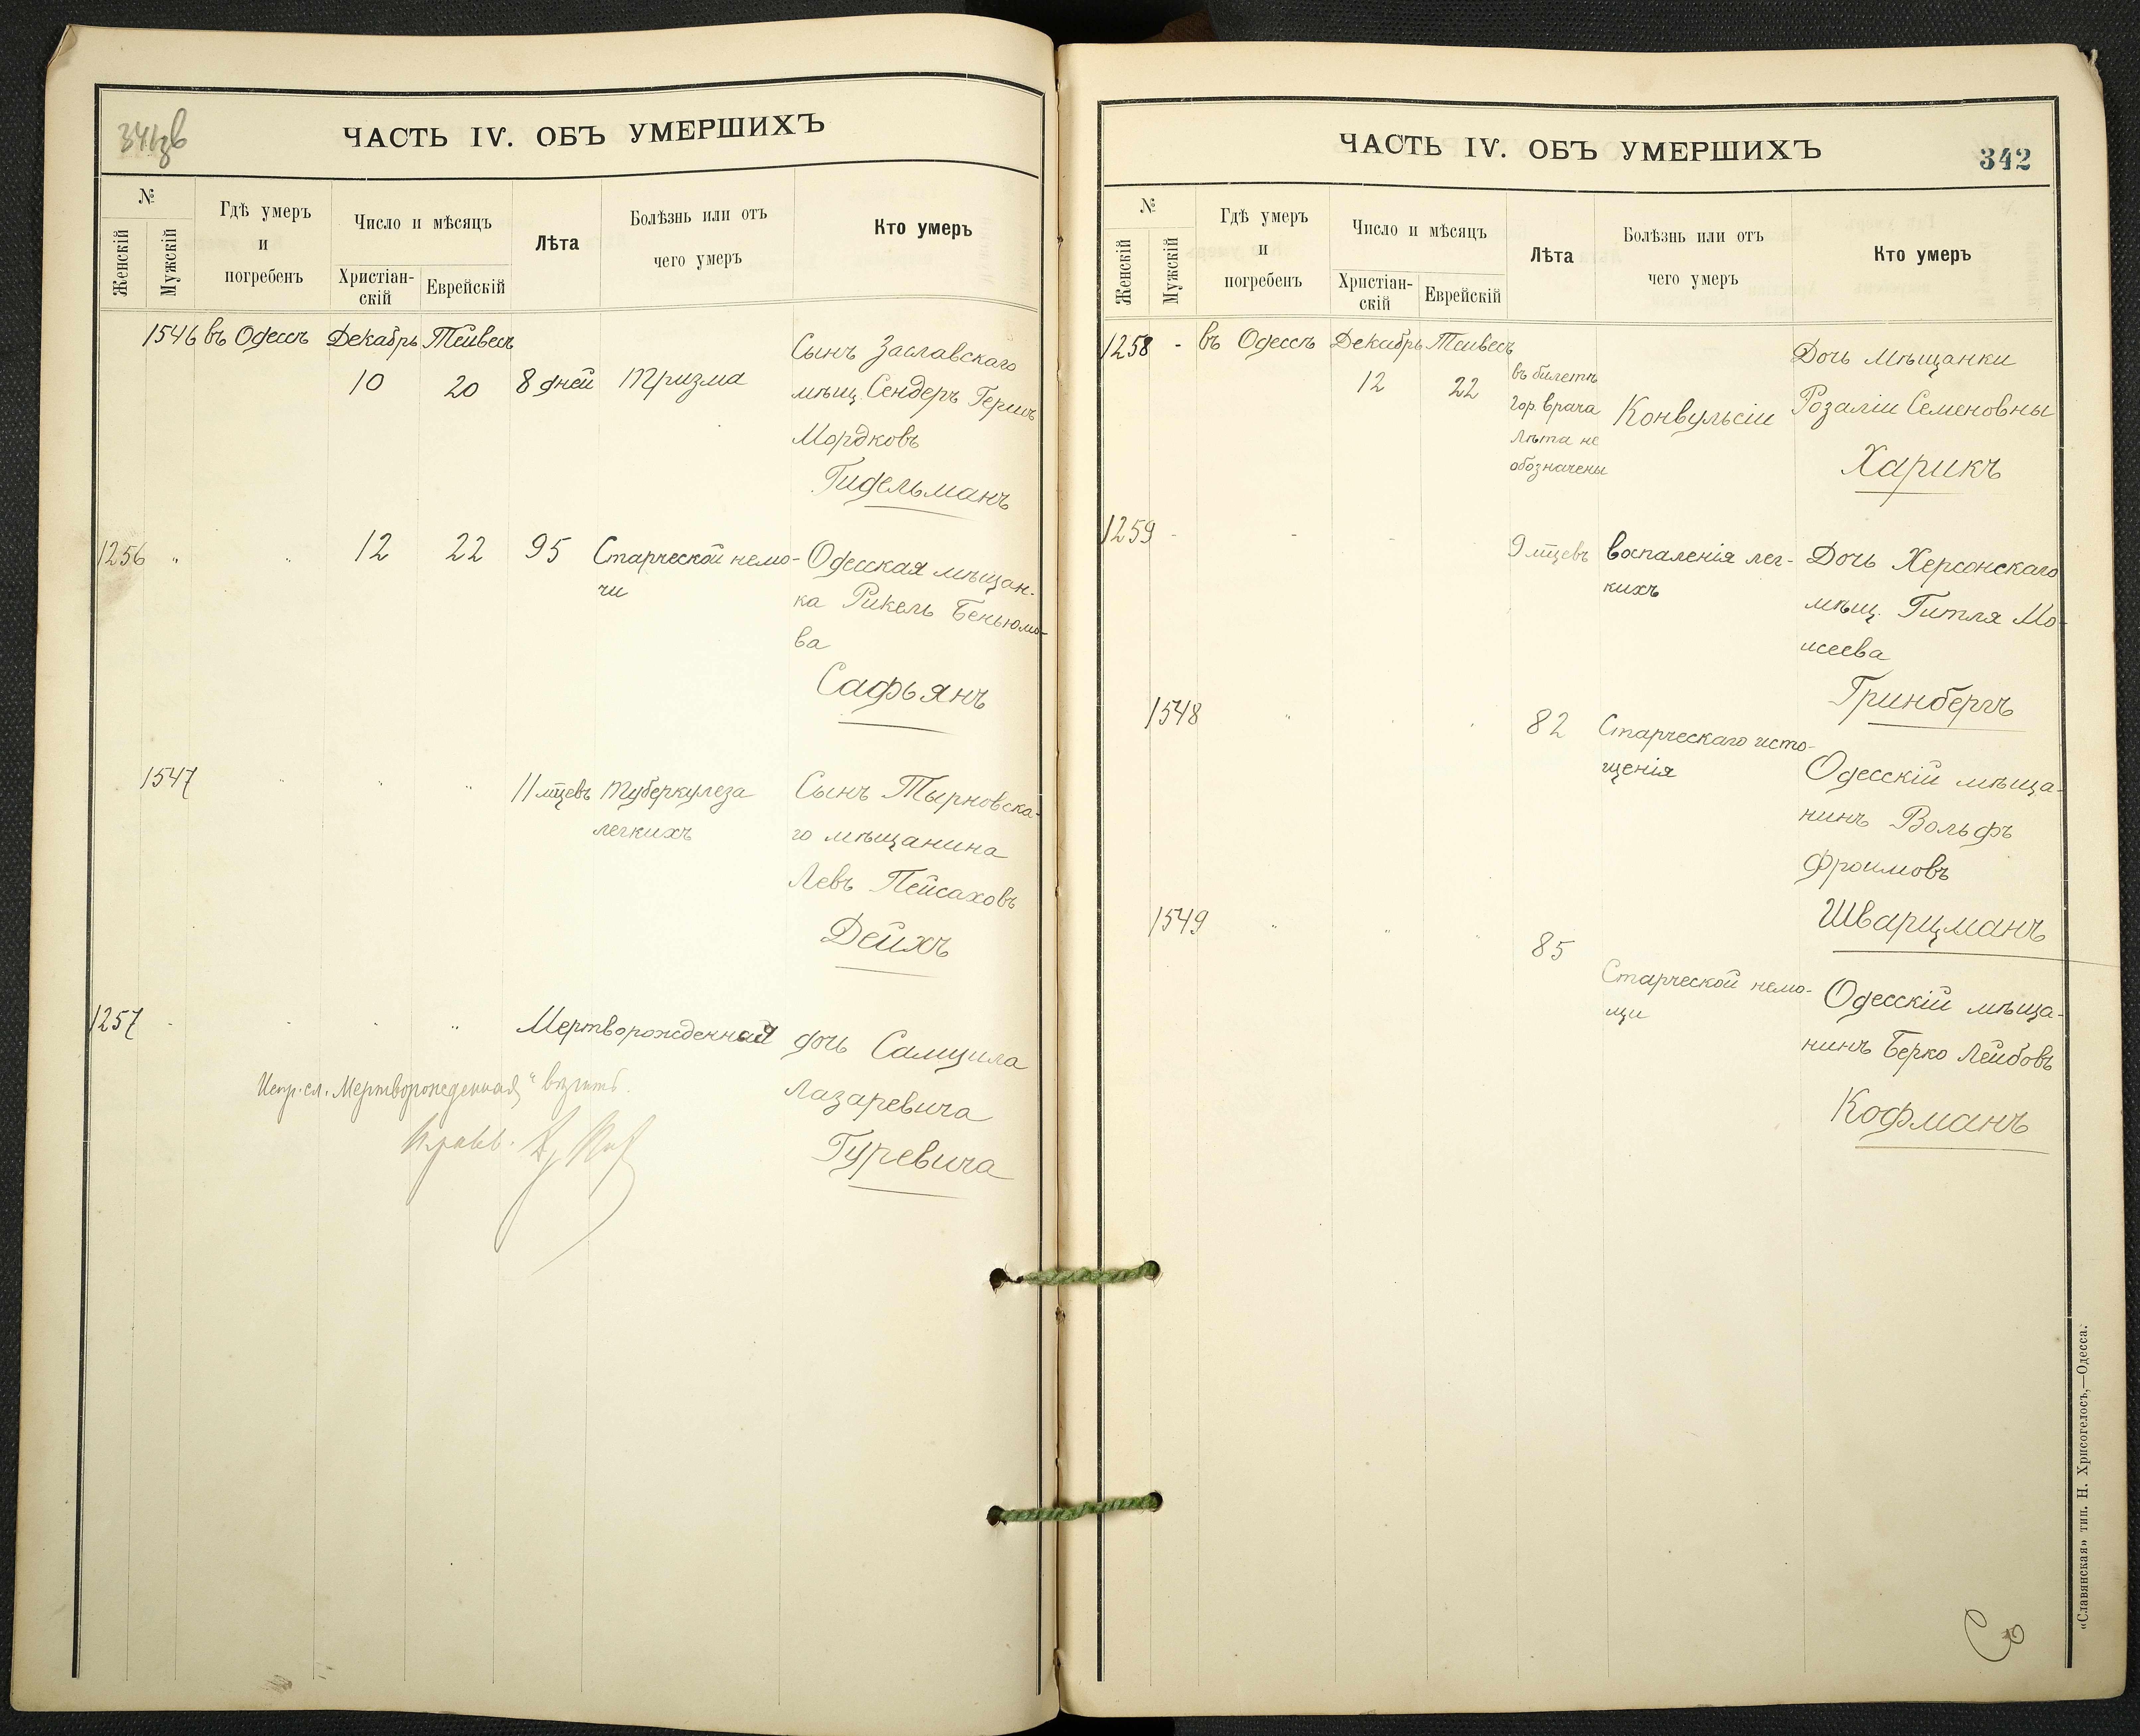 ЧАСТЬ IV. ОБЪ УМЕРШИХЪ
№
Женскій
Мужскій
Гдѣ умеръ
и
погребенъ
Число и мѣсяцъ
Христіан-
скій
Еврейскій
Лѣта
Болѣзнь или отъ
чего умеръ
Кто умеръ
1546 въ Одессѣ Декабрь Тейвесъ
10 20 8 дней тризма
Сынъ Заславскаго
мѣщ. Сендеръ Гершъ
Мордковъ
Гидельманъ
1256 " " 12 22 95 Старческой немо-
чи
Одесская мѣщан-
ка Рикель Беньюмо-
ва
Сафьянъ
1547 " " " 11 мцевъ туберкулеза
легкихъ
Сынъ Тырновска-
го мѣщанина
Левъ Пейсаховъ
Дейхъ
1257 - - - " Мертворожденная
дочь Самуила
Лазаревича
Гуревича
Испр. сл. „Мертворожденная“
ЧАСТЬ IV. ОБЪ УМЕРШИХЪ
342
№
Женскій
Мужскій
Гдѣ умеръ
и
погребенъ
Число и мѣсяцъ
Христіан-
скій
Еврейскій
Лѣта
Болѣзнь или отъ
чего умеръ
Кто умеръ
1258 - въ Одессѣ Декабрь Тейвесъ
12 22
въ билетѣ
гор. врача
лѣта не
обозначены
Конвульсіи
Дочь мѣщанки
Розаліи Семеновны
Харикъ
1259 - - - - 9 мцевъ воспаленія лег-
кихъ
Дочь Херсонскаго
мѣщ. Гитля Мо-
исеева
Гринбергъ
1548 " " " 82 Старческаго исто-
щенія
Одесскій мѣща-
нинъ Вольфъ
Фроимовъ
Шварцманъ
1549 " " " 85
Старческой немо-
щи
Одесскій мѣща-
нинъ Берко Лейбовъ
Кофманъ
«Славянская» тип. Н. Хрисогелосъ,—Одесса.